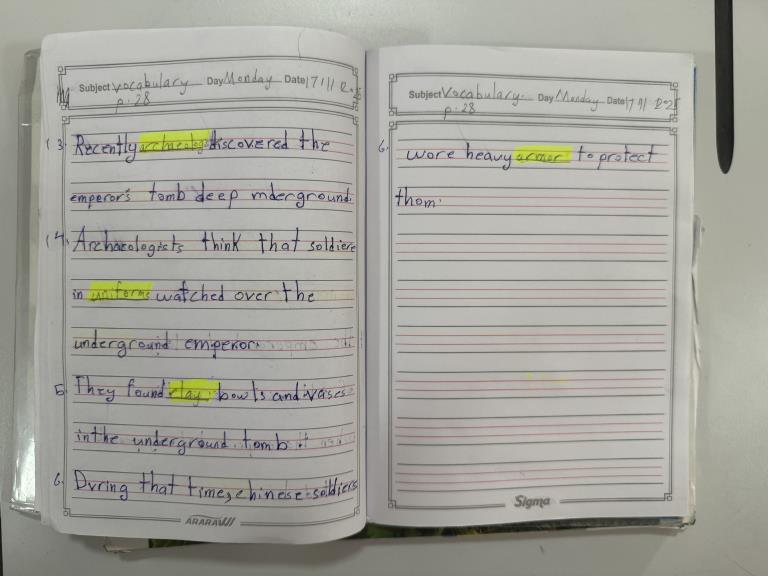 Subject vocabulary Day Monday Date 17/11
p. 28
3. Recently archaeologists discovered the
emperor's tomb deep nderground.
4. Archaeologists think that soldiers
in uniforms watched over the
underground emperor.
5. They found clay bowls and vases
in the underground tomb.
6. During that time, chinese soldiers
ARARAW
Subject Vocabulary. Day Monday Date 17/11 2025
p. 28
6. wore heavy armor to protect
thom.
Sigma